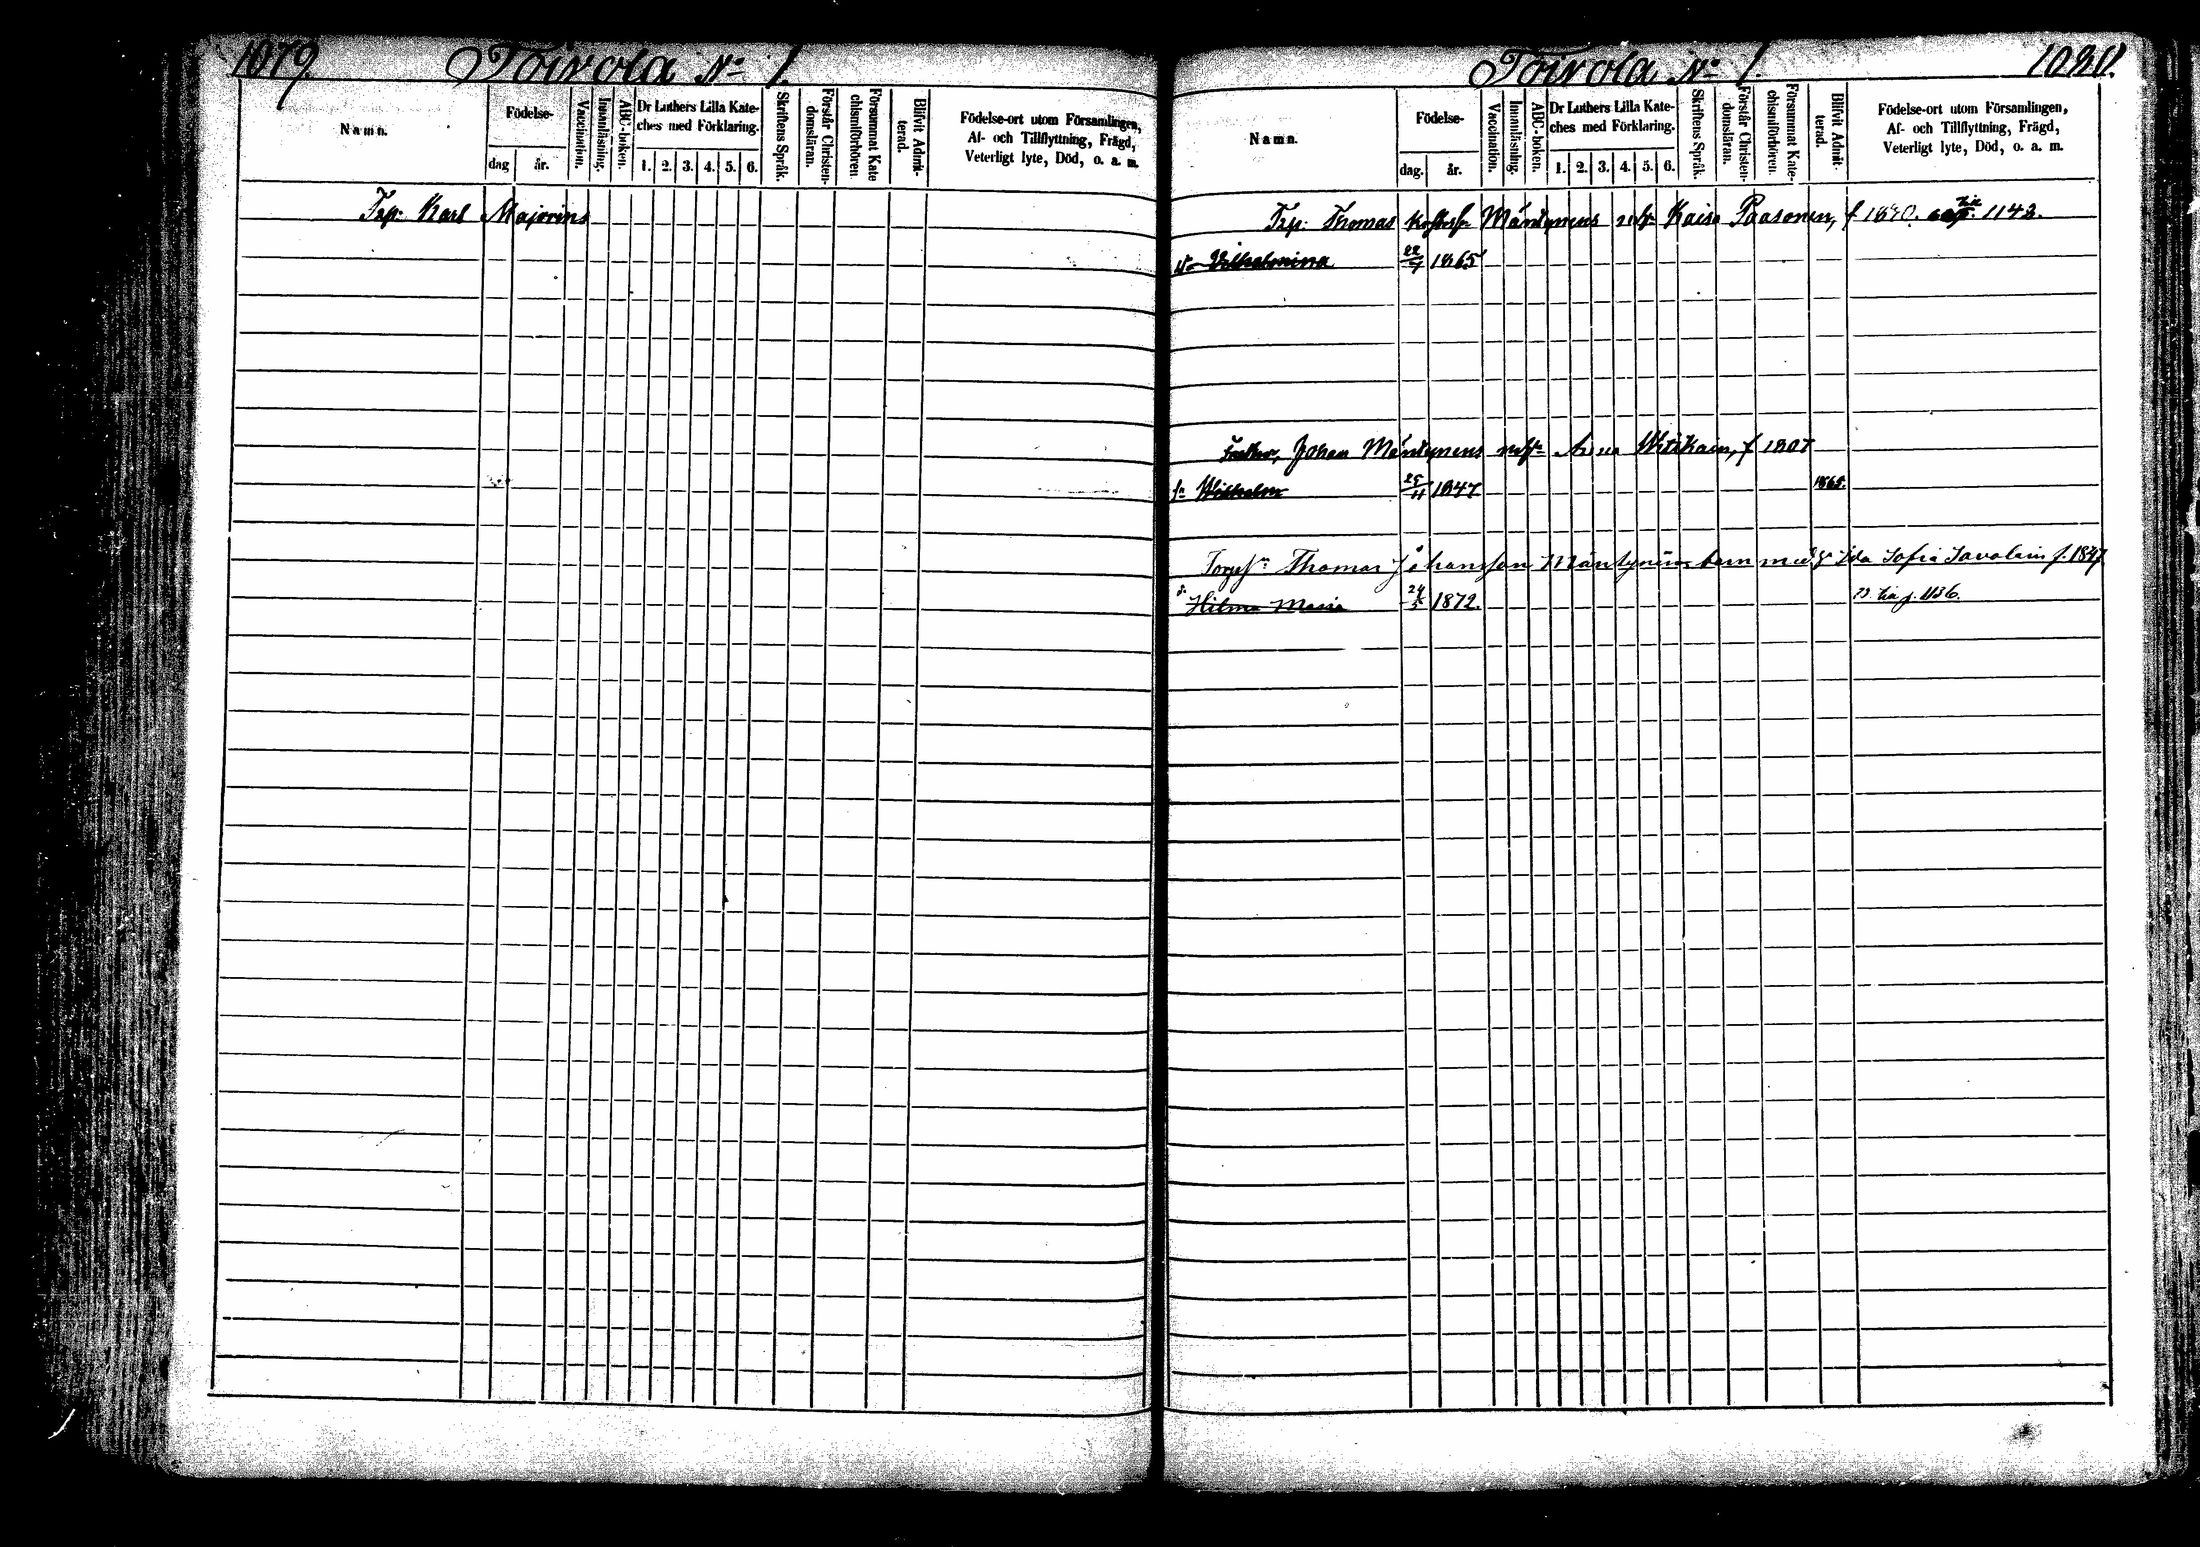 1079. Toivola No 1.
Namn.
Födelse-
dag
år.
Vaccination.
Innanläsning.
ABC-boken.
Dr Luthers Lilla Kate-
ches med Förklaring.
1. 2. 3. 4. 5. 6.
Skriftens Språk.
Förstår Christen-
domsläran.
Försummat Kate
chismiförhören
Blifvit Admit-
terad.
Födelse-ort utom Församlingen,
Af- och Tillflyttning, Frägd,
Veterligt lyte, Död, o. a. m.
Karl Majorins
Toivola No 1. 1080.
Namn.
Födelse-
dag.
år.
Vaccination.
Innanläsning.
ABC-boken.
Dr Luthers Lilla Kate-
ches med Förklaring.
1. 2. 3. 4. 5. 6.
Skriftens Språk.
Förstår Christen-
domsläran.
Försummat Kate-
chismiförhören.
Blifvit Admit-
terad.
Födelse-ort utom Församlingen,
Af- och Tillflyttning, Frägd,
Veterligt lyte, Död, o. a. m.
Thomas Mäntynens Kaisa Paasonen, f 1840. 1143.
Vilhelmina 1865
Johan Mäntynens Anna f 1807
Wilhelm 25/11 1847 1865.
Thomas Johansson Mäntynens barn med Ida Sofia Savolain f. 1847
d. Hilma Maria 24/5 1872. 1136.